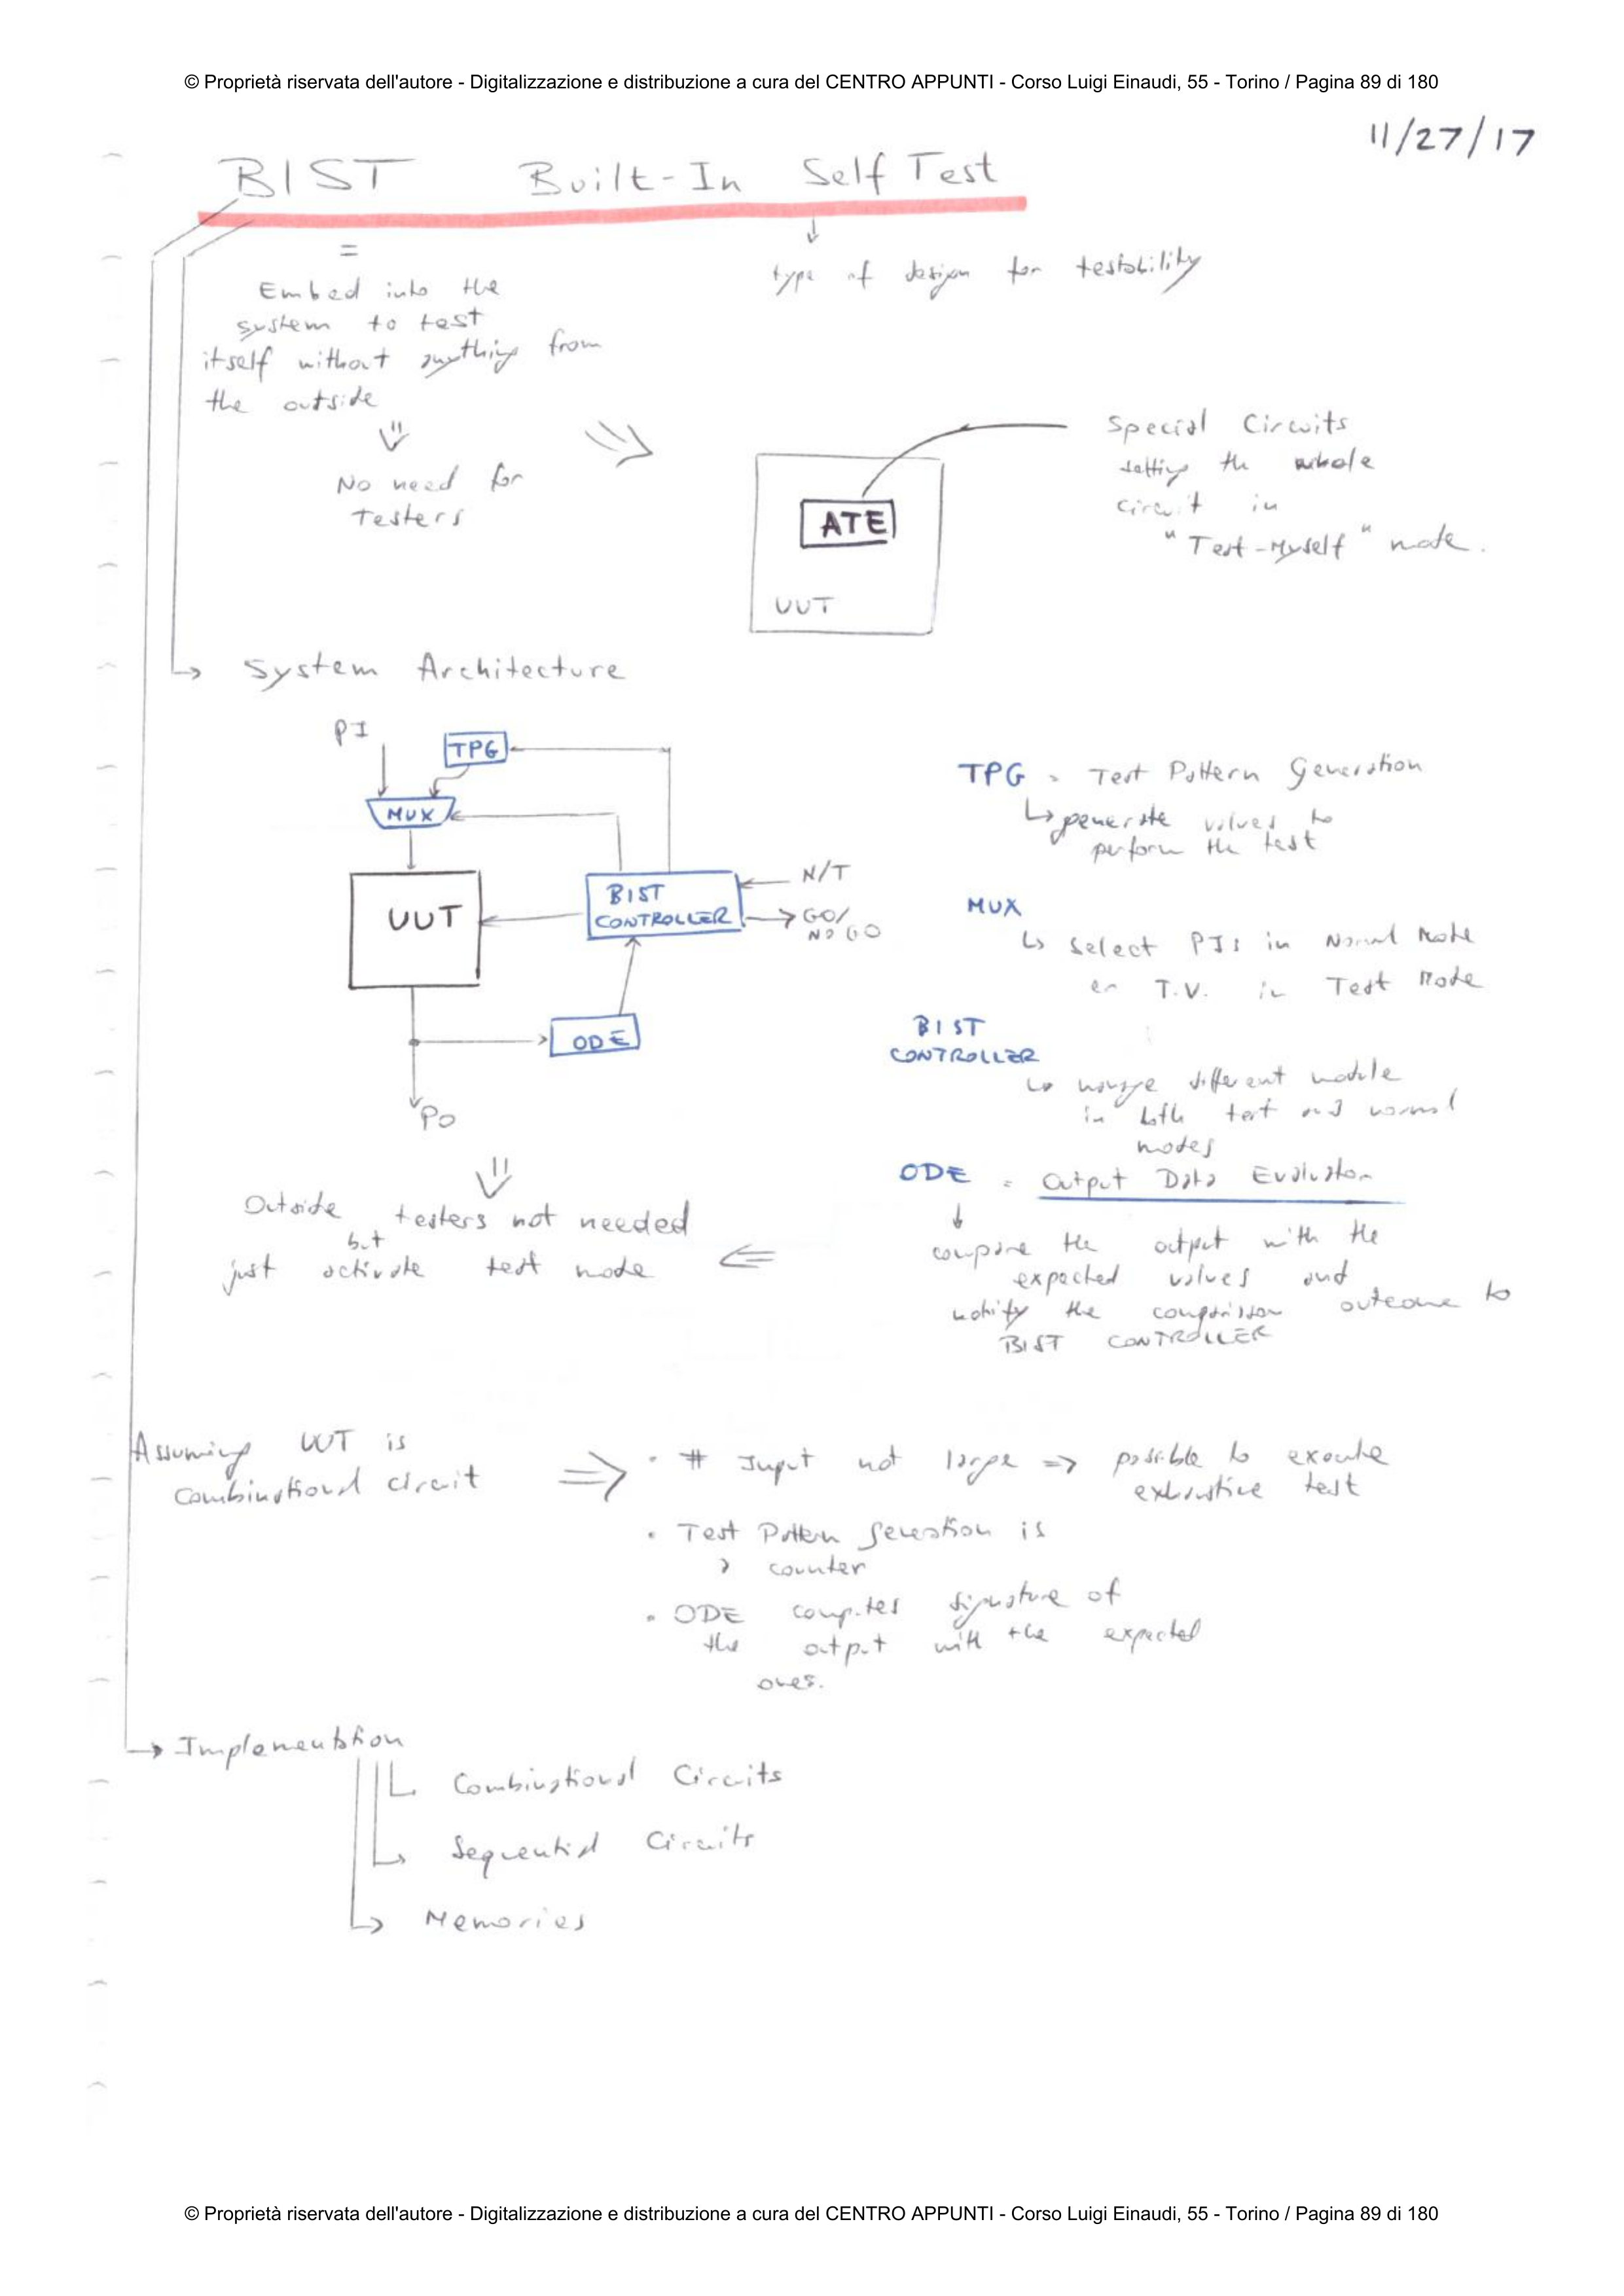 © Proprietà riservata dell'autore - Digitalizzazione e distribuzione a cura del CENTRO APPUNTI - Corso Luigi Einaudi, 55 - Torino / Pagina 89 di 180
11/27/17
BIST Built-In Self Test
=
Embed into the
system to test
itself without anything from
the outside
No need for
Testers
type of design for testability
Special Circuits
setting the whole
circuit in
"Test-Myself" mode.
ATE
UUT
System Architecture
PI
TPG
MUX
UUT
BIST
CONTROLLER
N/T
GO/
NO GO
ODE
PO
TPG = Test Pattern Generation
generate values to
perform the test
MUX
select PIs in Normal Mode
or T.V. in Test Mode
BIST
CONTROLLER
manage different module
in both test and normal
modes
ODE = Output Data Evaluator
compare the output with the
expected values and
notify the comparison outcome to
BIST CONTROLLER
Outside testers not needed
but
just activate test mode
Assuming UUT is
Combinational circuit
• # Input not large => possible to execute
exhaustive test
• Test Pattern Generation is
a counter
• ODE computes signature of
the output with the expected
ones.
Implementation
Combinational Circuits
Sequential Circuits
Memories
© Proprietà riservata dell'autore - Digitalizzazione e distribuzione a cura del CENTRO APPUNTI - Corso Luigi Einaudi, 55 - Torino / Pagina 89 di 180